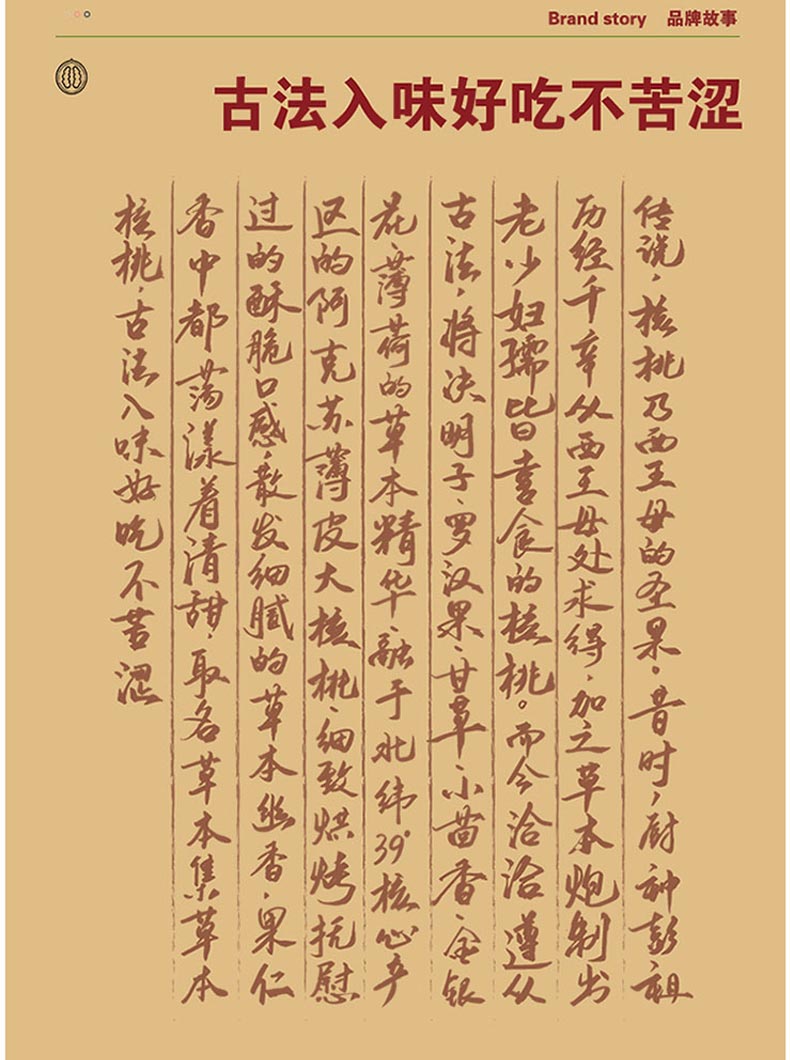 Brand story 品牌故事
古法入味好吃不苦涩
传说，核桃乃西王母的圣果。昔时，厨神彭祖
历经千辛从西王母处求得，加之草本炮制出
老少妇孺皆喜食的核桃。而今洽洽遵从
古法，将决明子、罗汉果、甘草、小茴香、金银
花、薄荷的草本精华，融于北纬39°核心产
区的阿克苏薄皮大核桃、细致烘烤抚慰
过的酥脆口感，散发细腻的草本幽香，果仁
香中都荡漾着清甜，取名草本集草本
核桃，古法入味好吃不苦涩